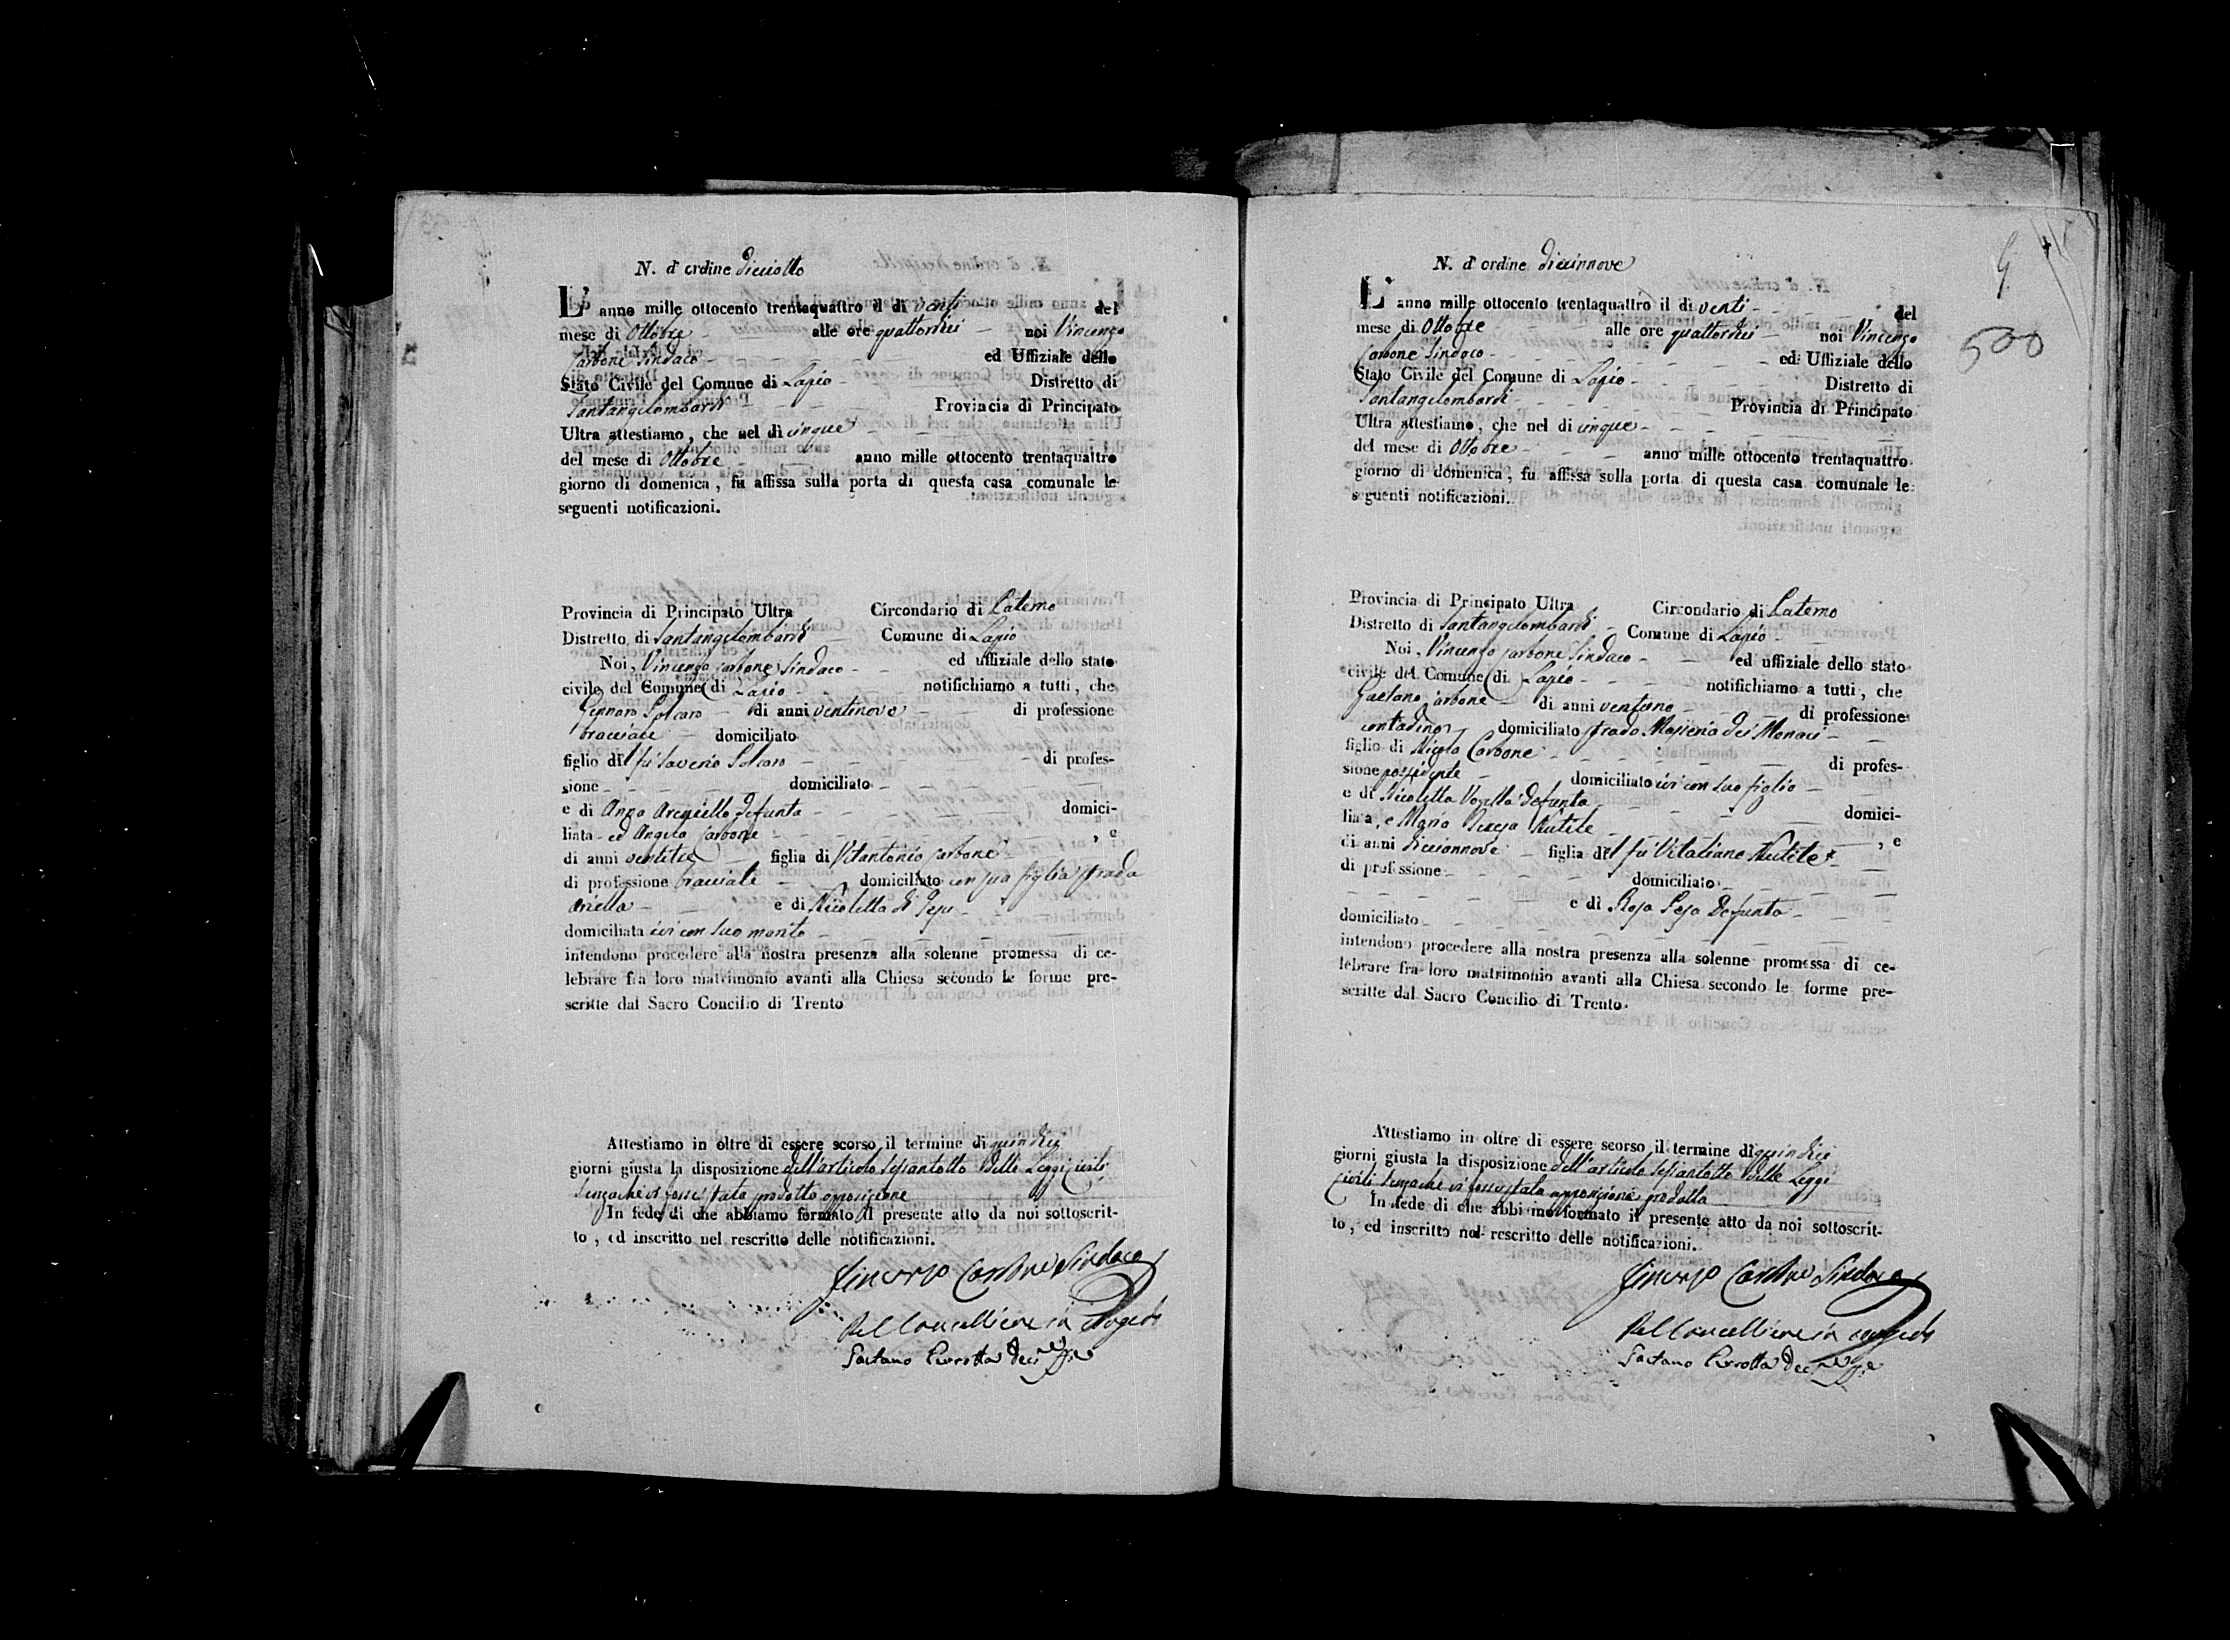 N. d' ordine diciotto
L' anno mille ottocento trentaquattro il di venti del
mese di Ottobre alle ore quattordici noi Vincenzo
Carbone Sindaco ed Uffiziale dello
Stato Civile del Comune di Lapio Distretto di
Santangelombardi Provincia di Principato
Ultra attestiamo, che nel dì cinque
del mese di Ottobre anno mille ottocento trentaquattro
giorno di domenica, fu affissa sulla porta di questa casa comunale le
seguenti notificazioni.
Provincia di Principato Ultra Circondario di Paterno
Distretto di Santangelombardi Comune di Lapio
Noi, Vincenzo Carbone Sindaco ed uffiziale dello stato
civile del Comune di Lapio notifichiamo a tutti, che
Gennaro di anni ventinove di professione
bracciale domiciliato
figlio del fu Saverio di profes-
sione domiciliato
e di Anna defunta domici-
liata ed Angela Carbone , e
di anni ventitre figlia di Vitantonio Carbone
di professione bracciale domiciliato con sua figlia strada
Ariella e di Nicoletta di
domiciliata ivi con suo marito
intendono procedere alla nostra presenza alla solenne promessa di ce-
lebrare fra loro matrimonio avanti alla Chiesa secondo le forme pre-
scritte dal Sacro Concilio di Trento
Attestiamo in oltre di essere scorso il termine di quindici
giorni giusta la disposizione dell'articolo sessantotto delle Leggi civili
senzache vi fosse stata prodotta opposizione
In fede di che abbiamo formato il presente atto da noi sottoscrit-
to, ed inscritto nel rescritto delle notificazioni.
Vincenzo Carbone Sindaco
Pel Cancelliere in congedo
Gaetano
N. d' ordine diciannove
L' anno mille ottocento trentaquattro il di venti del
mese di Ottobre alle ore quattordici noi Vincenzo
Carbone Sindaco ed Uffiziale dello
Stato Civile del Comune di Lapio Distretto di
Santangelombardi Provincia di Principato
Ultra attestiamo, che nel di cinque
del mese di Ottobre anno mille ottocento trentaquattro
giorno di domenica, fu affissa sulla porta di questa casa comunale le
seguenti notificazioni.
Provincia di Principato Ultra Circondario di Paterno
Distretto di Santangelombardi Comune di Lapio
Noi, Vincenzo Carbone Sindaco ed uffiziale dello stato
civile del Comune di Lapio notifichiamo a tutti, che
Gaetano Carbone di anni ventuno di professione
contadino domiciliato strada Masseria dei Monaci
figlio di Carbone di profes-
sione possidente domiciliato ivi con suo figlio
e di Nicoletta defunta domici-
liata, e Maria Teresa , e
di anni diciannove figlia del fu Vitaliano
di professione domiciliato
e di Rosa defunta
domiciliato
intendono procedere alla nostra presenza alla solenne promessa di ce-
lebrare fra loro matrimonio avanti alla Chiesa secondo le forme pre-
scritte dal Sacro Concilio di Trento.
Attestiamo in oltre di essere scorso il termine di quindici
giorni giusta la disposizione dell'articolo sessantotto delle Leggi
Civili senzache vi fosse stata opposizione prodotta
In fede di che abbiamo formato il presente atto da noi sottoscrit-
to, ed inscritto nel rescritto delle notificazioni.
Vincenzo Carbone Sindaco
Pel Cancelliere in congedo
Gaetano
500